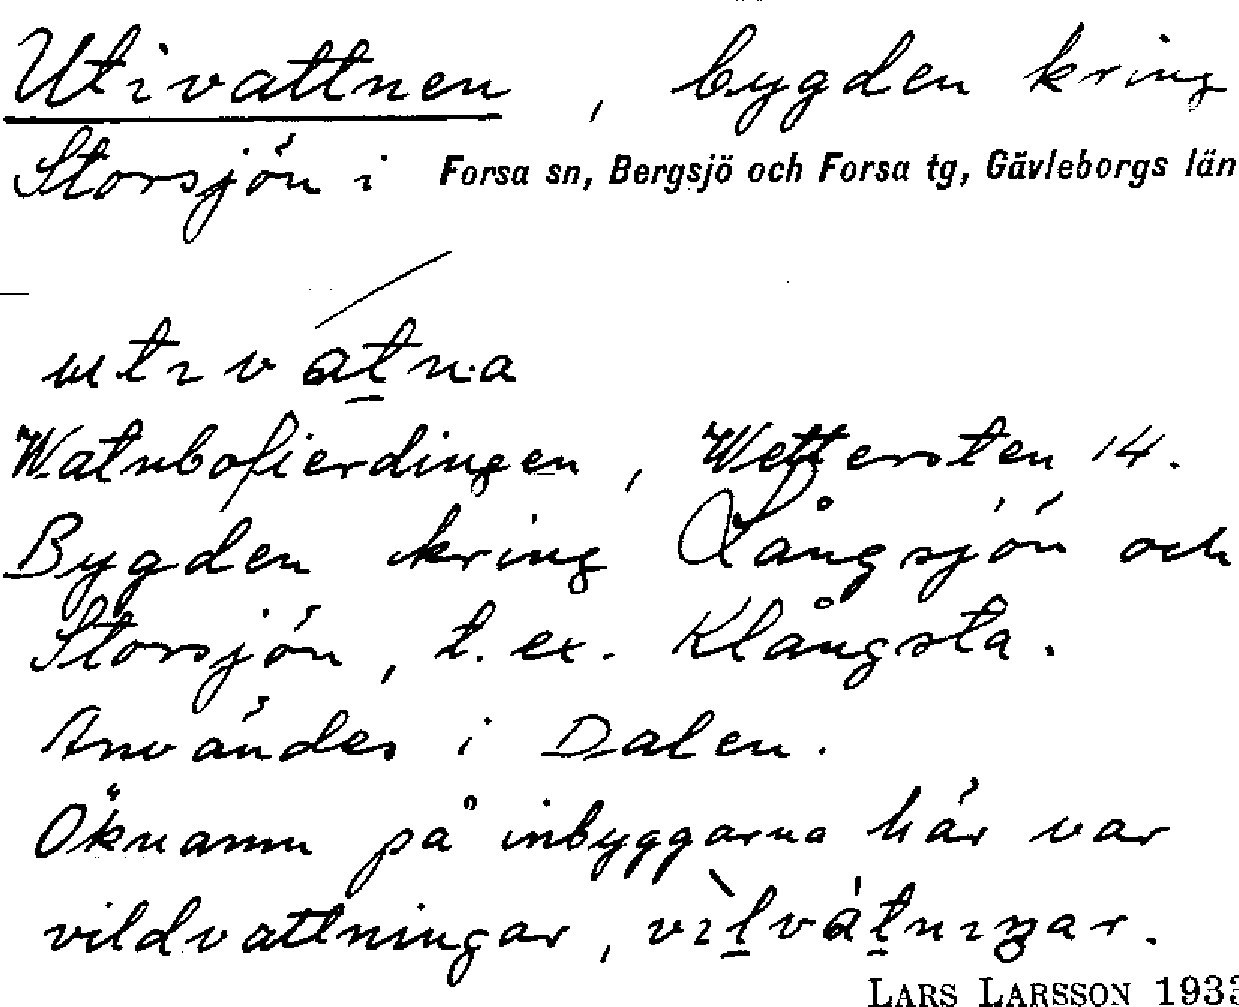 Utivattnen, bygden kring
Storsjön i Forsa sn, Bergsjö och Forsa tg, Gävleborgs län
utıvat̲na
Watnbofierdingen, Wettersten 14.
Bygden kring Långsjön och
Storsjön, t.ex. Klångsta.
Användes i Dalen.
Öknamn på inbyggarna här var
vildvattningar, vìl̲vát̲nıŋar.
LARS LARSSON 193